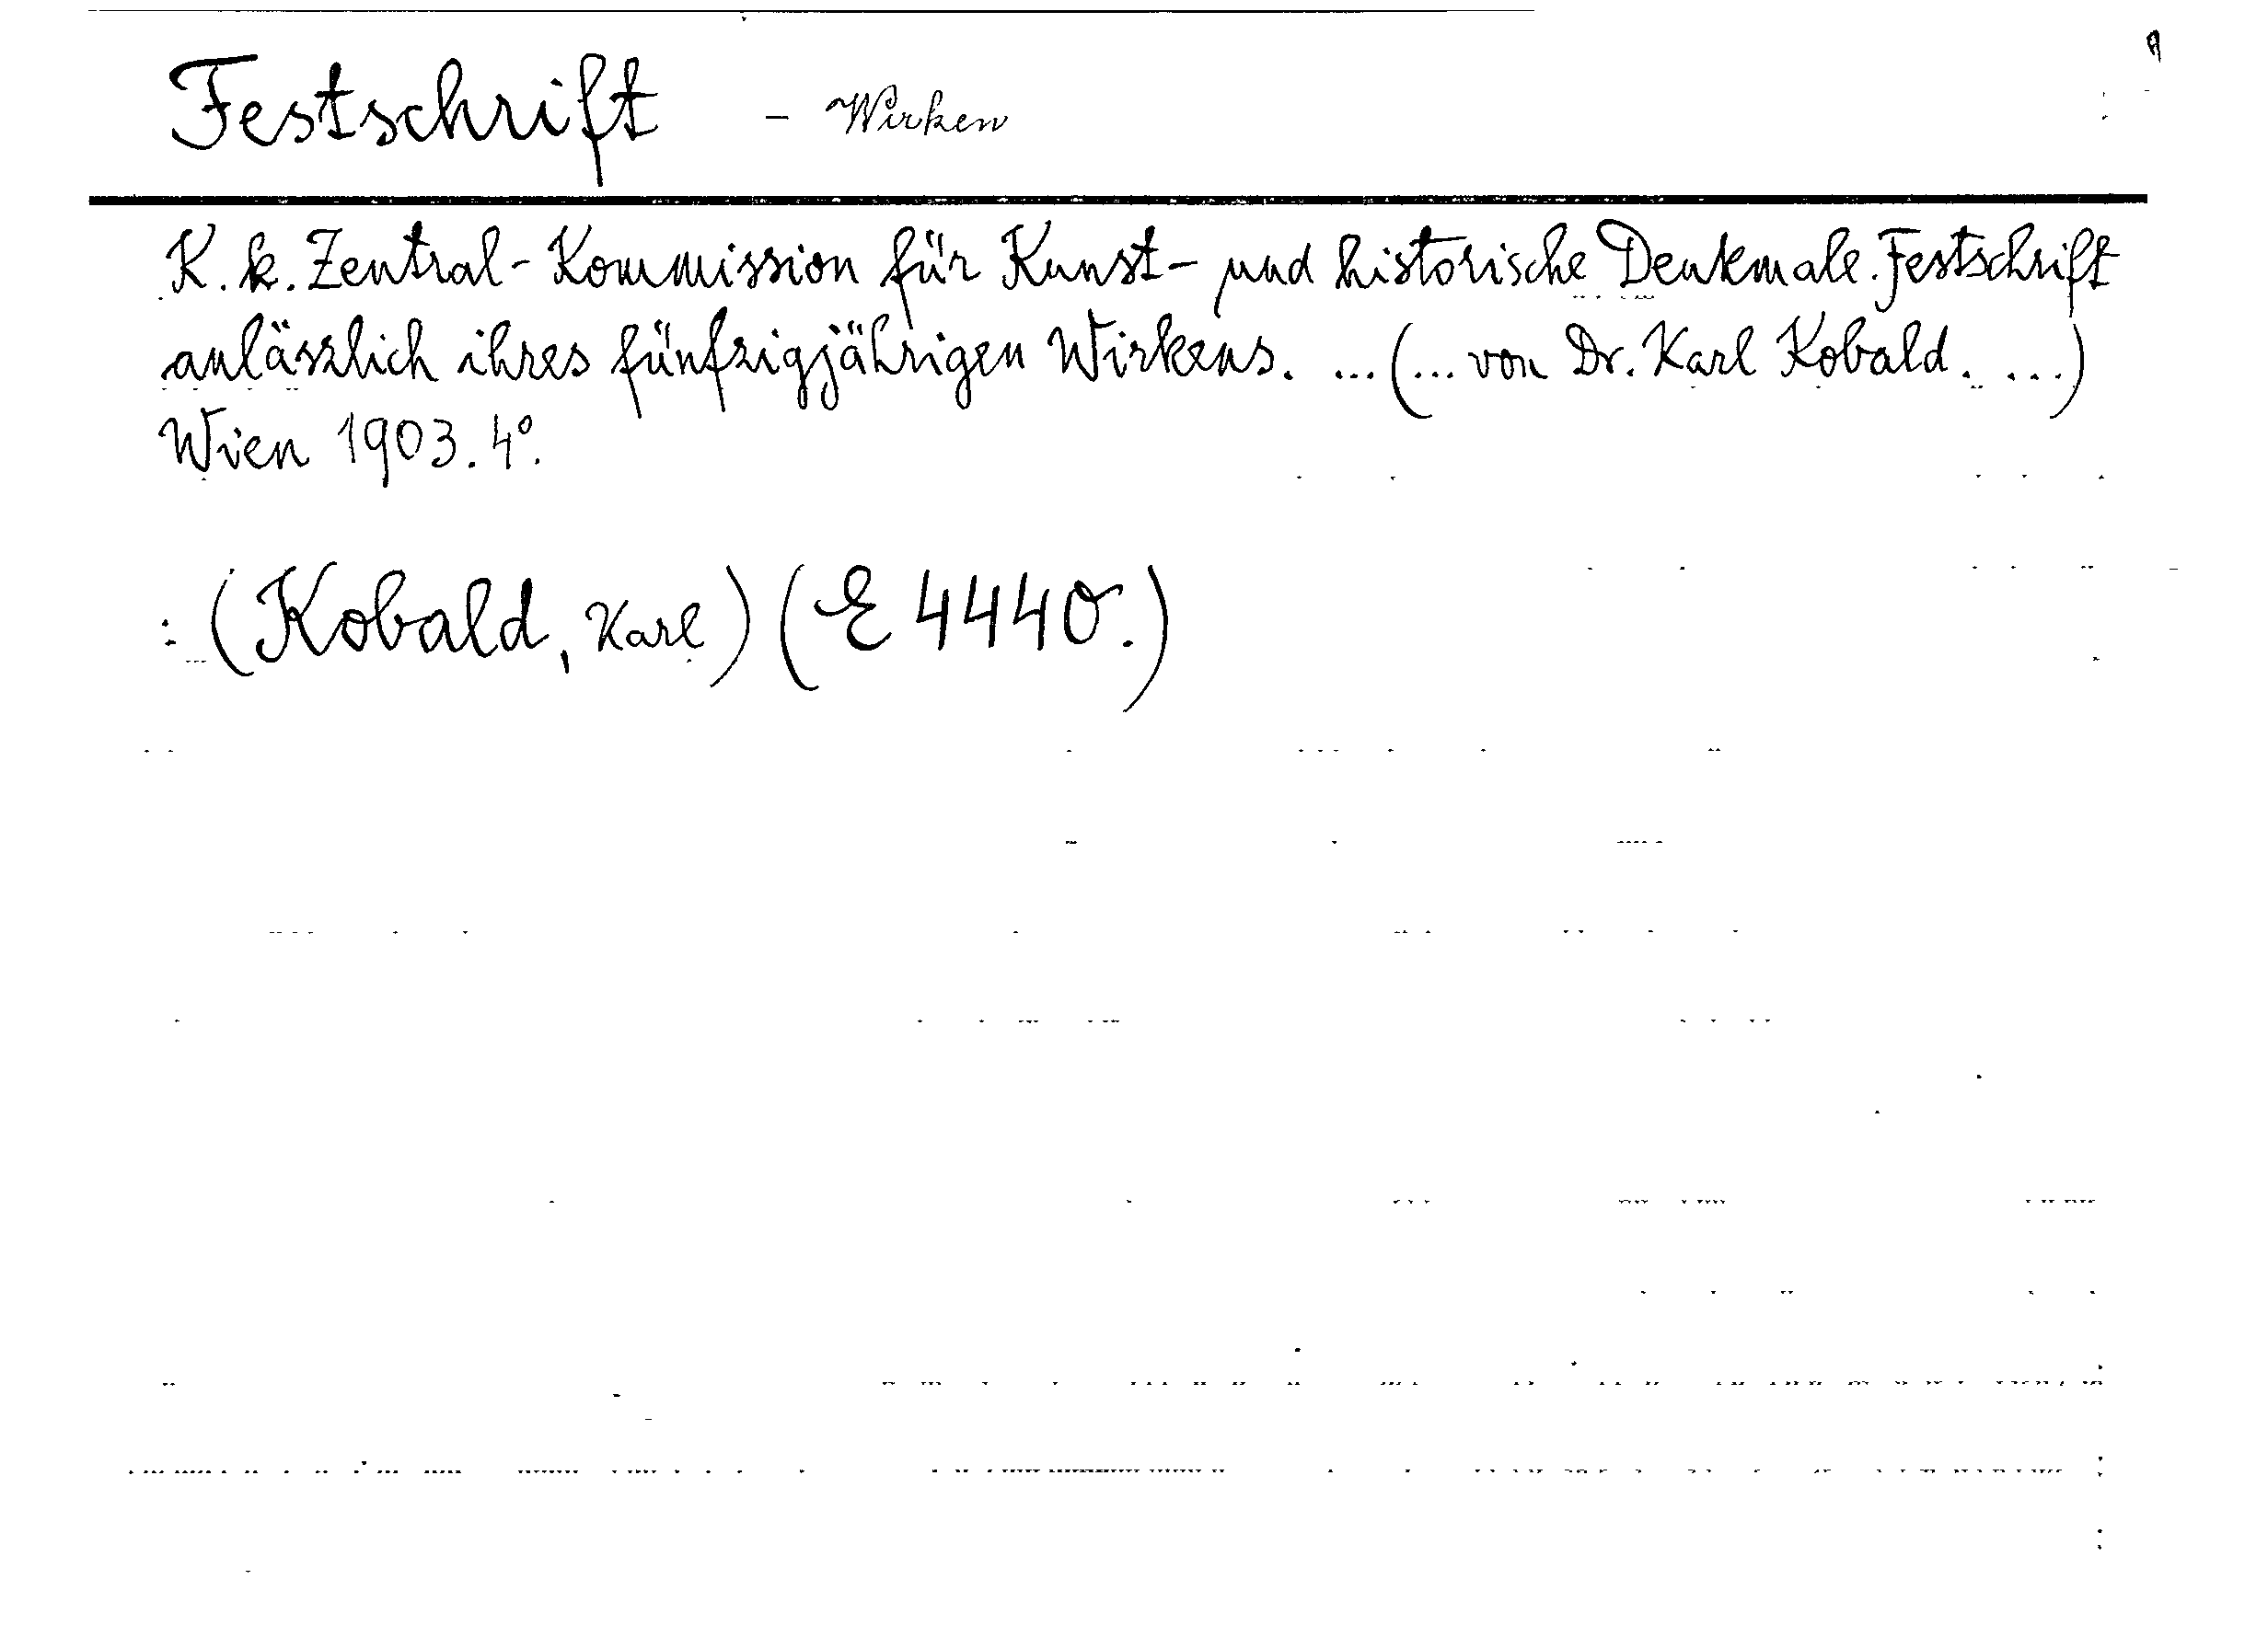 Festschrift - Wirken
K. k. Zentral-Kommission für Kunst- und historische Denkmale. Festschrift
anläszlich ihres fünfzigjährigen Wirkens. ... (... von Dr. Karl Kobald. ...)
Wien 1903. 4°.
(Kobald, Karl) (E 4440.)